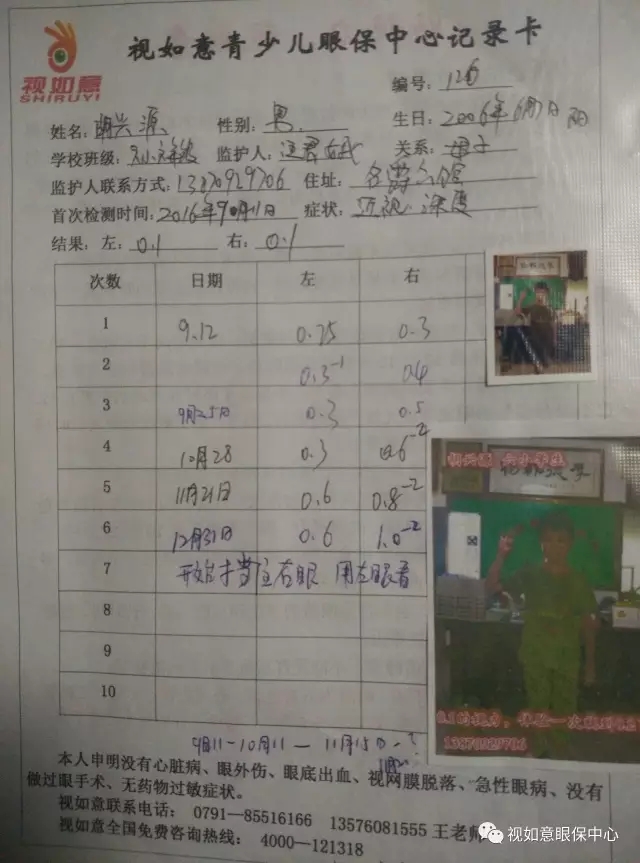 视如意
SHIRUYI
视如意青少儿眼保中心记录卡
编号: 126
姓名: 胡兴源 性别: 男. 生日: 2006年6月7日 阴
学校班级: 监护人: 关系: 母子
监护人联系方式: 13870929706 住址:
首次检测时间: 2016年9月11日 症状: 近视 深度
结果: 左: 0.1 右: 0.1
次数 日期 左 右
1 9.12 0.25 0.3
2 0.3⁻¹ 0.4
3 9月25日 0.3 0.5
4 10月28 0.3 0.6⁻²
5 11月21日 0.6 0.8⁻²
6 12月31日 0.6 1.0⁻²
7 开始 挡住右眼 用左眼看
8
9
10
9月11-10月11 — 11月15日
胡兴源 六小学生
0.1的视力，体验一次就到0.2
13870929706
本人申明没有心脏病、眼外伤、眼底出血、视网膜脱落、急性眼病、没有
做过眼手术、无药物过敏症状。
视如意联系电话: 0791—85516166 13576081555 王老师
视如意全国免费咨询热线: 4000—121318
视如意眼保中心